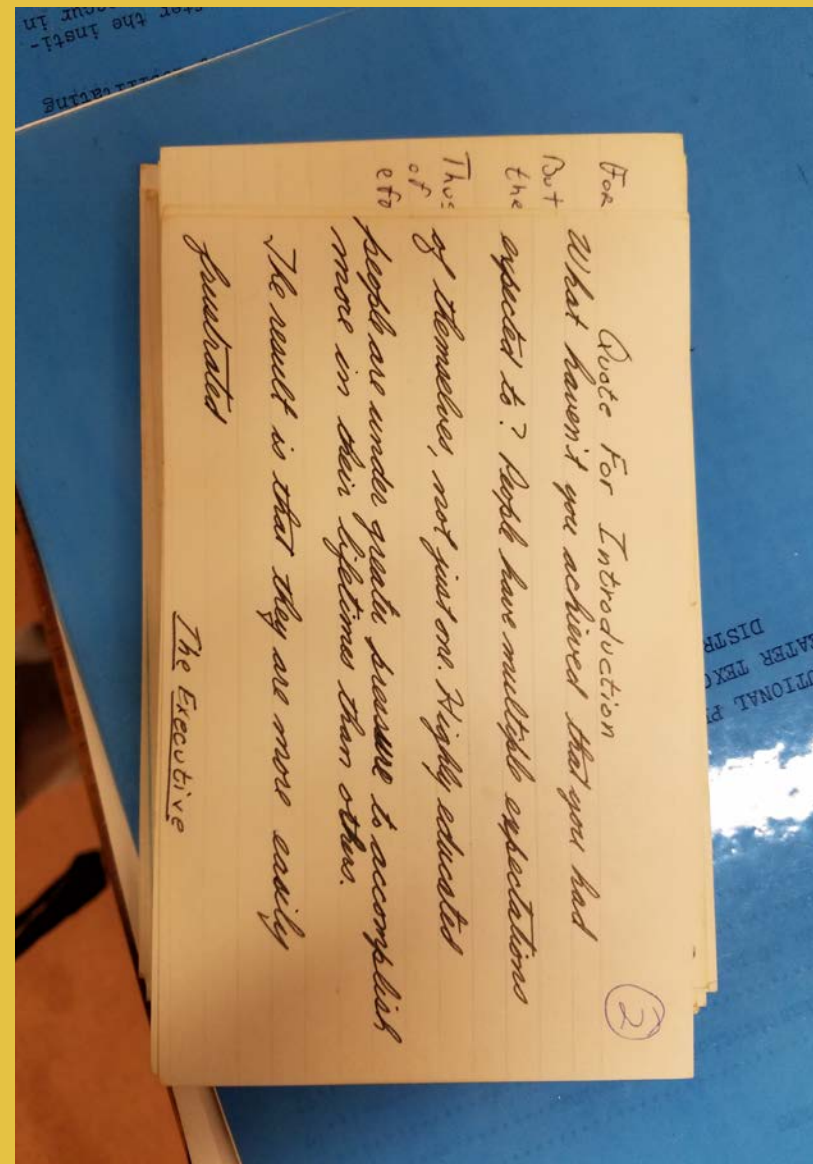 Quote For Introduction
What haven't you achieved that you had
expected to? People have multiple expectations
of themselves, not just one. Highly educated
people are under greater pressure to accomplish
more in their lifetimes than others.
The result is that they are more easily
frustrated
The Executive
2
For
But
the
Thus
of
efo
ter the insti-
ilitating
UTIONAL P
EATER TEXO
DISTR